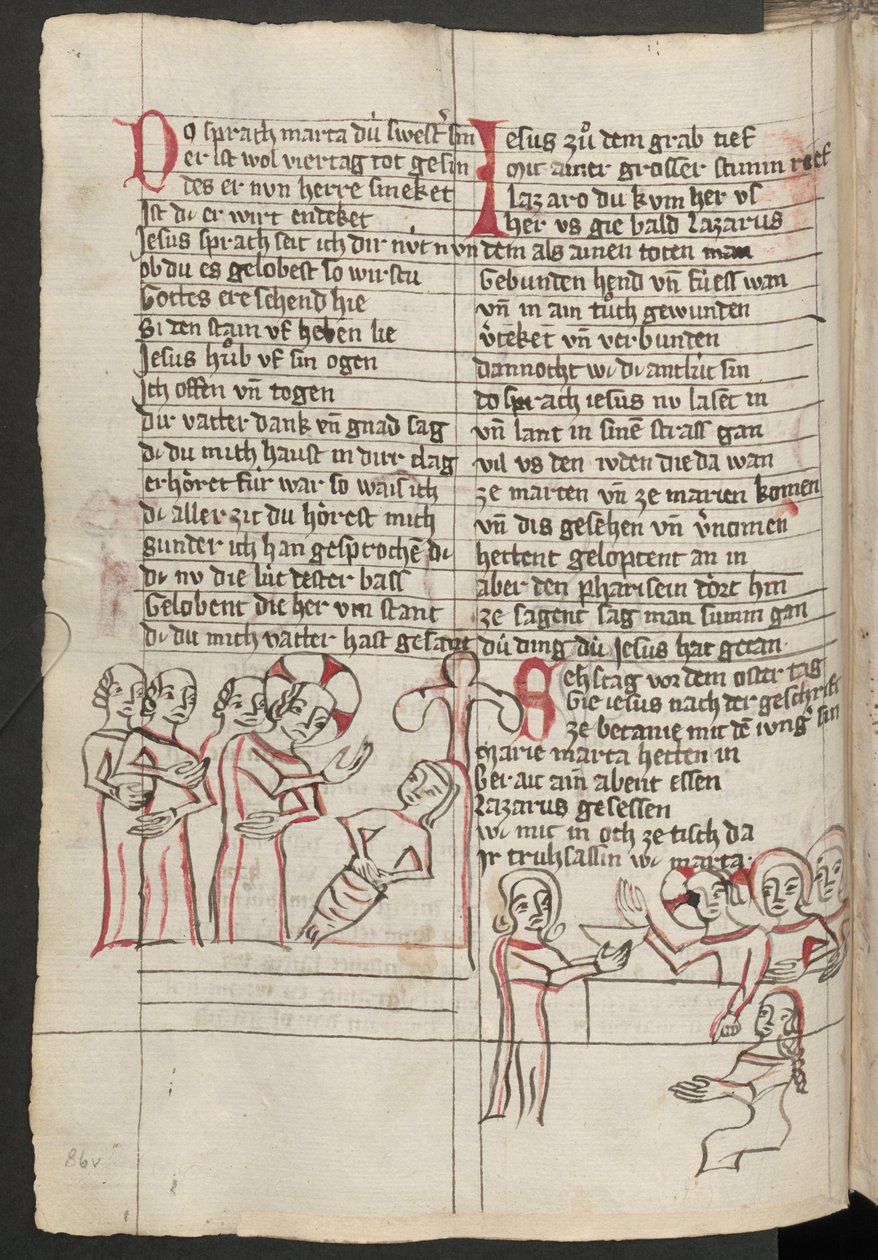 Do sprach marta dù swestˀ sin
er ist wol viertag tot gesin
des er nvn herre smeket
Ist dc er wirt endeket
Jesus sprach seit ich dir nvt nvn
ob du es gelobest so wirstu
Gottes ere sehend hie
Si den stain vf heben lie
Jesus hůb vf sin ogen
Ich offen vn̄ togen
dir vatter dank vn̄ gnad sag
dc du mich haust in dirr clag
erhöret fùr war so wais ich
dc aller zit du hörest mich
Sunder ich han gesprochē dc
dc nv die lùt dester bass
Gelobent die her vm stant
dc du mich vatter hast gesant
Jesus zů dem grab tief
Mit ainer grosser stimm rief
lazaro du kvm her vs
her vs gie bald Lazarus
dem als ainen toten man
Gebunden hend vn̄ fuess wan
vn̄ in ain tůch gewunden
vˀteket vn̄ verbunden
dannocht wc dc antlùt sin
do sprach iesus nv lasēt in
vn̄ lant in sinē strass gan
vil vs den ivden die da wan
ze marten vn̄ ze marien komen
vn̄ dis gesehen vn̄ vˀnomen
hettent geloptent an in
aber den pharisein dört hin
ze sagent sag man summ gan
dù ding dù Jesus hat getan
Sehs tag vor dem oster tag
Gie iesus nach der geschrift
ze betanie mit dē ivngˀ sin
Marie marta hetten in
Berait ain abent essen
Lazarus gesessen
wc mit in och ze tisch da
Ir truhsassin wc marta
86v